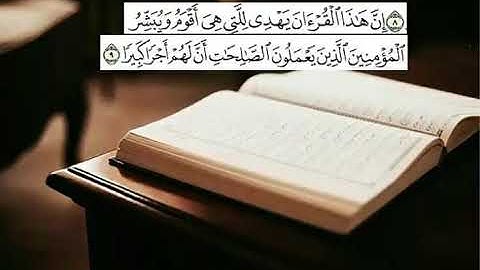 ٨ إِنَّ هَٰذَا ٱلْقُرْءَانَ يَهْدِى لِلَّتِى هِىَ أَقْوَمُ وَيُبَشِّرُ
ٱلْمُؤْمِنِينَ ٱلَّذِينَ يَعْمَلُونَ ٱلصَّٰلِحَٰتِ أَنَّ لَهُمْ أَجْرًا كَبِيرًا ٩